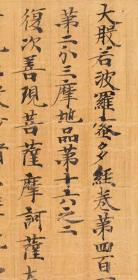 大般若波羅蜜多經卷第四百
第二分三摩地品第十六之二
復次善現菩薩摩訶薩大